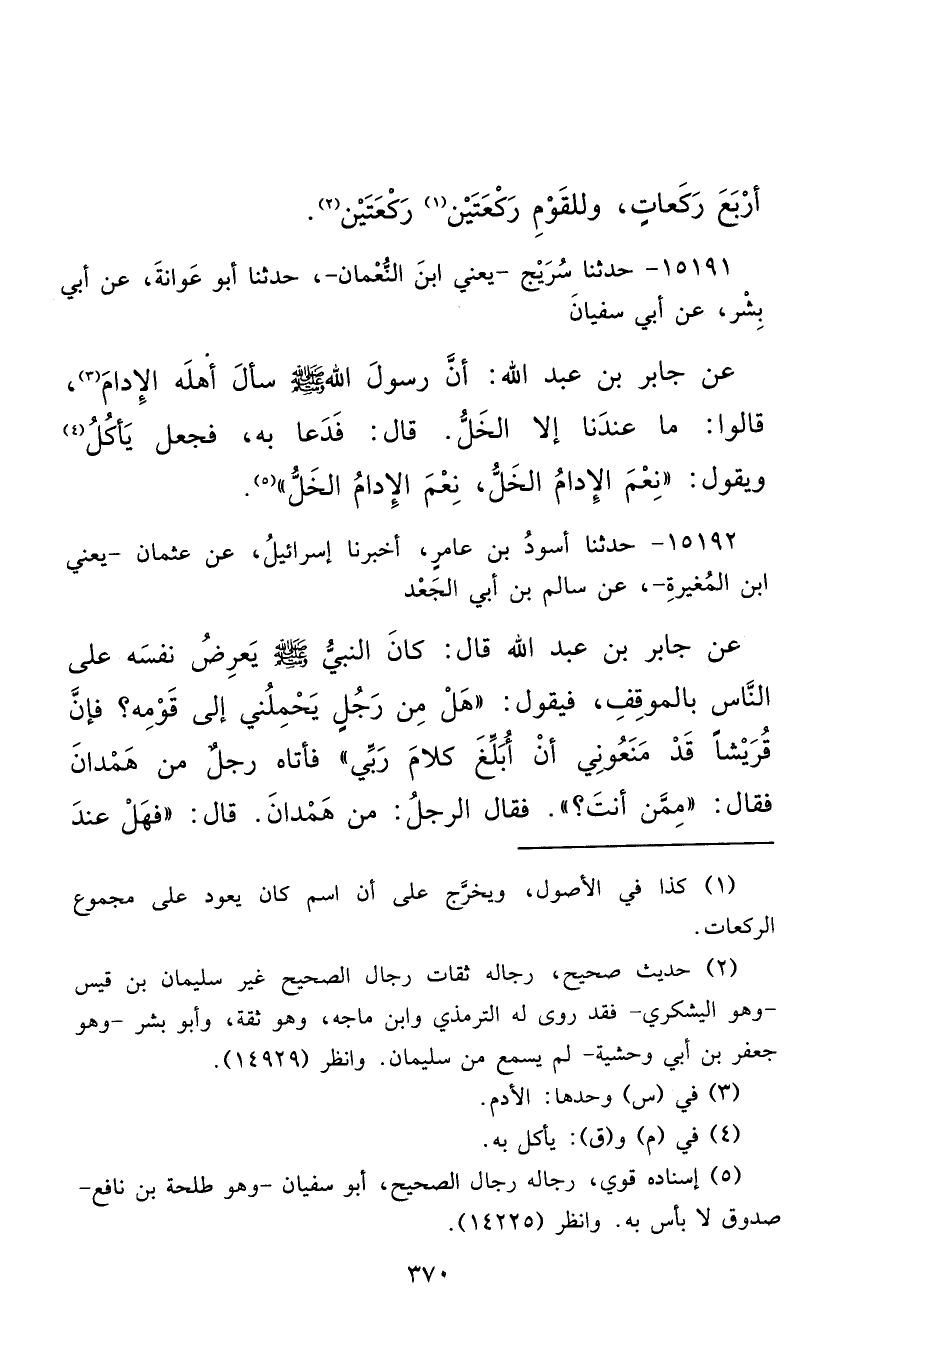 أَرْبَعَ رَكَعاتٍ، وللقَوْمِ رَكْعَتَيْن(١) رَكْعَتَيْن(٢).
١٥١٩١- حدثنا سُرَيْج -يعني ابنَ النُّعْمان-، حدثنا أبو عَوانةَ، عن أبي
بِشْر، عن أبي سفيانَ
عن جابر بن عبد الله: أنَّ رسولَ اللهﷺ سألَ أهلَه الإدامَ(٣)،
قالوا: ما عندَنا إلا الخَلُّ. قال: فَدَعا به، فجعل يَأكُلُ(٤)
ويقول: «نِعْمَ الإدامُ الخَلُّ، نِعْمَ الإدامُ الخَلُّ»(٥).
١٥١٩٢- حدثنا أسودُ بن عامرٍ، أخبرنا إسرائيلُ، عن عثمان -يعني
ابن المُغيرةِ-، عن سالم بن أبي الجَعْد
عن جابر بن عبد الله قال: كانَ النبيُّ ﷺ يَعرِضُ نفسَه على
النَّاس بالموقِفِ، فيقول: «هَلْ مِن رَجُلٍ يَحْمِلُني إلى قَوْمِه؟ فإنَّ
قُرَيْشاً قَدْ مَنَعُونِي أنْ أُبَلِّغَ كلامَ رَبِّي» فأتاه رجلٌ من هَمْدانَ
فقال: «مِمَّن أنتَ؟». فقال الرجلُ: من هَمْدانَ. قال: «فهَلْ عندَ
(١) كذا في الأصول، ويخرَّج على أن اسم كان يعود على مجموع
الركعات.
(٢) حديث صحيح، رجاله ثقات رجال الصحيح غير سليمان بن قيس
-وهو اليشكري- فقد روى له الترمذي وابن ماجه، وهو ثقة، وأبو بشر -وهو
جعفر بن أبي وحشية- لم يسمع من سليمان. وانظر (١٤٩٢٩).
(٣) في (س) وحدها: الأدم.
(٤) في (م) و(ق): يأكل به.
(٥) إسناده قوي، رجاله رجال الصحيح، أبو سفيان -وهو طلحة بن نافع-
صدوق لا بأس به. وانظر (١٤٢٢٥).
٣٧٠